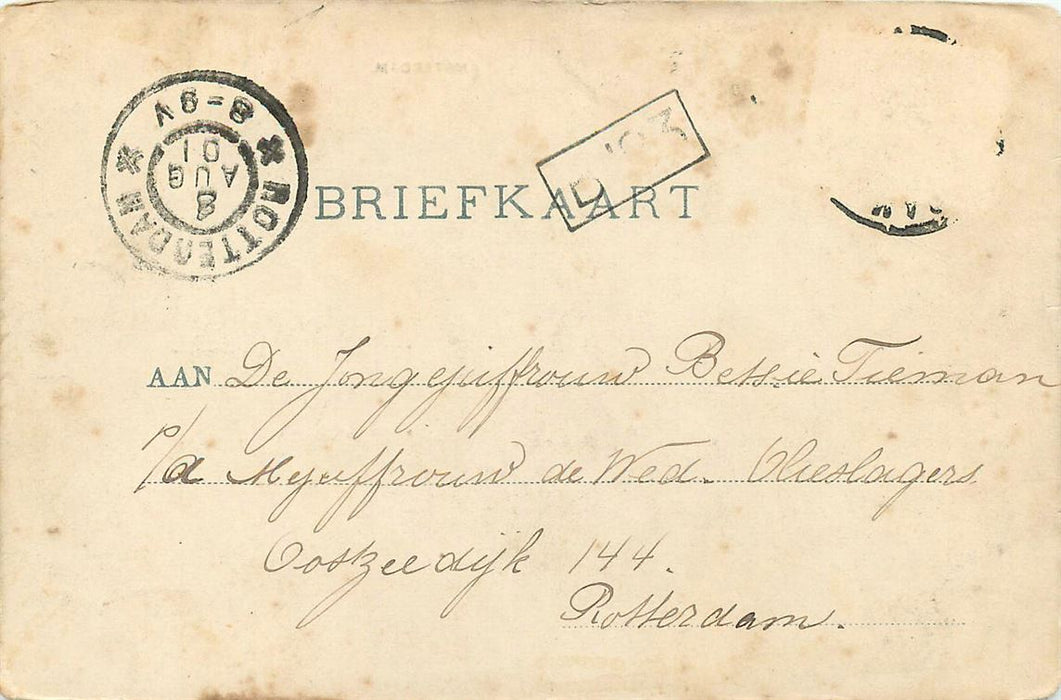 ROTTERDAM
8-9V
8
AUG
01
BRIEFKAART
AAN De Jongejuffrouw Bessie Tieman
p/a Mejuffrouw de Wed. Vlieslagers
Oostzeedijk 144.
Rotterdam.